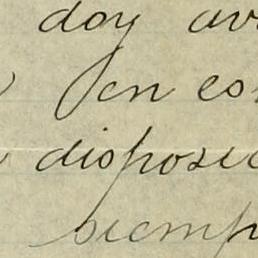 doy av
en co
disposic
siemp